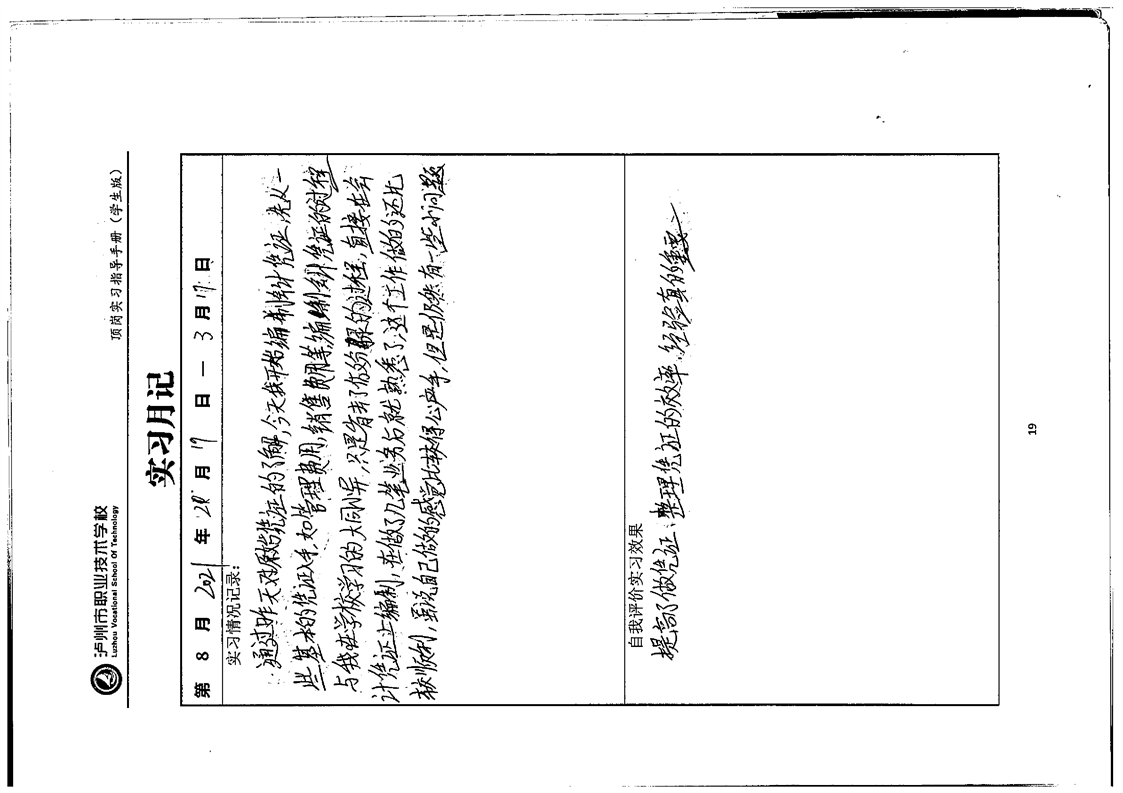 泸州市职业技术学校
Luzhou Vocational School Of Technology
顶岗实习指导手册（学生版）
实习月记
第 8 月 2021 年 2月 17 日 — 3月17日
实习情况记录：
通过昨天对原始凭证的了解，今天我开始编制会计凭证，先从一
些基本的凭证入手，如管理费用，销售费用等，编制会计凭证的过程
与我在学校学习的大同小异，只是省去了你分录的过程，直接在会
计凭证上编制，在做了几笔业务后就熟悉了，这个工作做的还比
较顺利，虽说自己做的感觉比较得心应手，但是仍然有一些小问题
自我评价实习效果
提高了做凭证、整理凭证的效率，经验真的重要
19